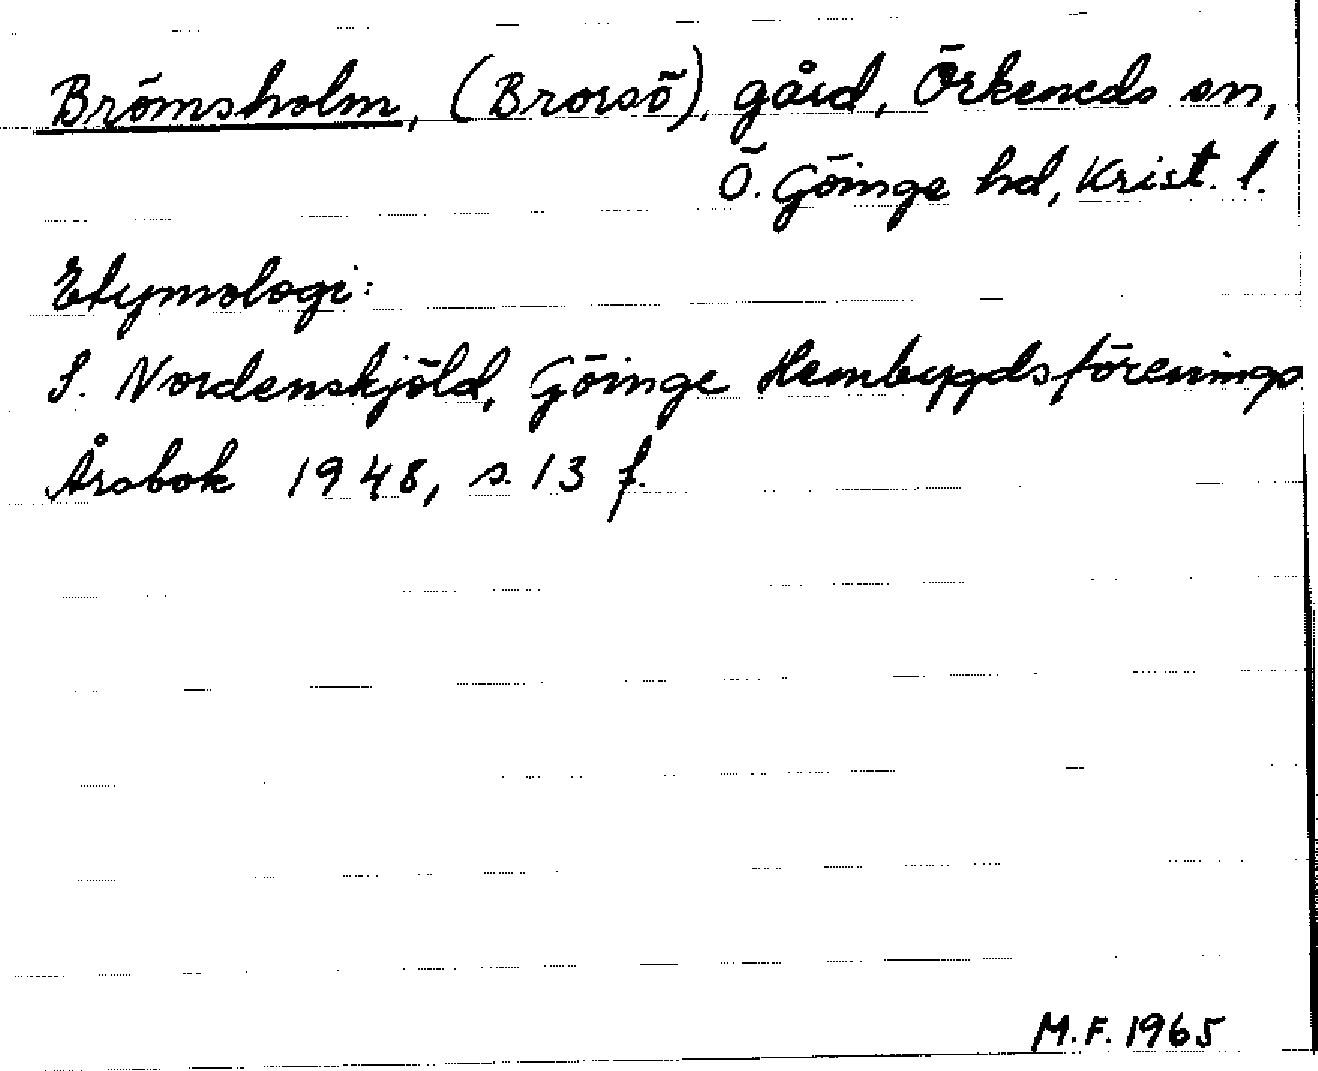 Brömsholm, (Brorsö), gård, Örkeneds sn,
Ö. Göinge hd, Krist. l.
Etymologi:
S. Nordenskjöld, Göinge Hembygdsförenings
Årsbok 1948, s. 13 f.
M.F. 1965